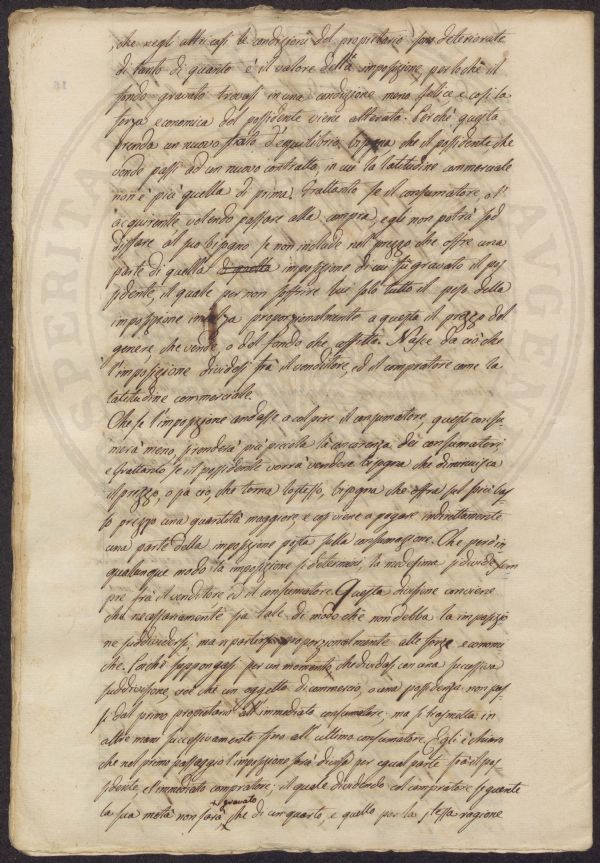 che negli altri casi le condizioni del proprietario sono deteriorate
di tanto di quanto è il valore della imposizione, perlochè il
fondo gravato trovasi in una condizione meno felice, e così la
forza economica del possidente viene alterata. Perchè questa
prenda un nuovo stato d'equilibrio, bisogna che il possidente che
vende passi ad un nuovo contratto, in cui la latitudine commerciale
non è più quella di prima. Frattanto se il consumatore, o l'
acquirente volendo passare alla compra, egli non potrà sod
disfare al suo bisogno se non include nel prezzo che offre una
parte di quella di quella imposizione di cui fù gravato il pos
sidente, il quale per non soffrire lui solo tutto il peso della
imposizione inalza proporzionalmente a questa il prezzo del
genere che vende, o del fondo che affitta. Nasce da ciò che
l'imposizione dividesi frà il venditore, ed il compratore come la
latitudine commerciale.
Che se l'imposizione andasse a colpire il consumatore, questi consu
merà meno, si renderà più piccola la concorrenza dei consumatori,
e frattanto se il possidente vorrà vendere bisogna che diminuisca
il prezzo, o sia ciò, che torna lo stesso, bisogna che offra sul più bas
so prezzo una quantità maggiore, e così viene a pagare indirettamente
una parte della imposizione posta sulla consumazione. Che però in
qualunque modo la imposizione si determini, la medesima si divide sem
pre frà il venditore ed il consumatore. Questa divisione conviene
che necessariamente sia tale di modo che non debba la imposizio
ne suddividersi, ma ripartirsi proporzionalmente alle forze economi
che. Perchè suppongasi per un momento, che dividasi con una successiva
suddivisione, cioè che un oggetto di commercio, o una possidenza non pas
si dal primo proprietario all'immediato consumatore, ma si trasmetta in
altre mani successivamente sino all'ultimo consumatore. Egli è chiaro
che nel primo passaggio l'imposizione sarà divisa per egual parte frà il pos
sidente, e l'immediato compratore; il quale dividendo col compratore seguente
la sua metà non sarà gravato che di un quarto, e quello per la stessa ragione